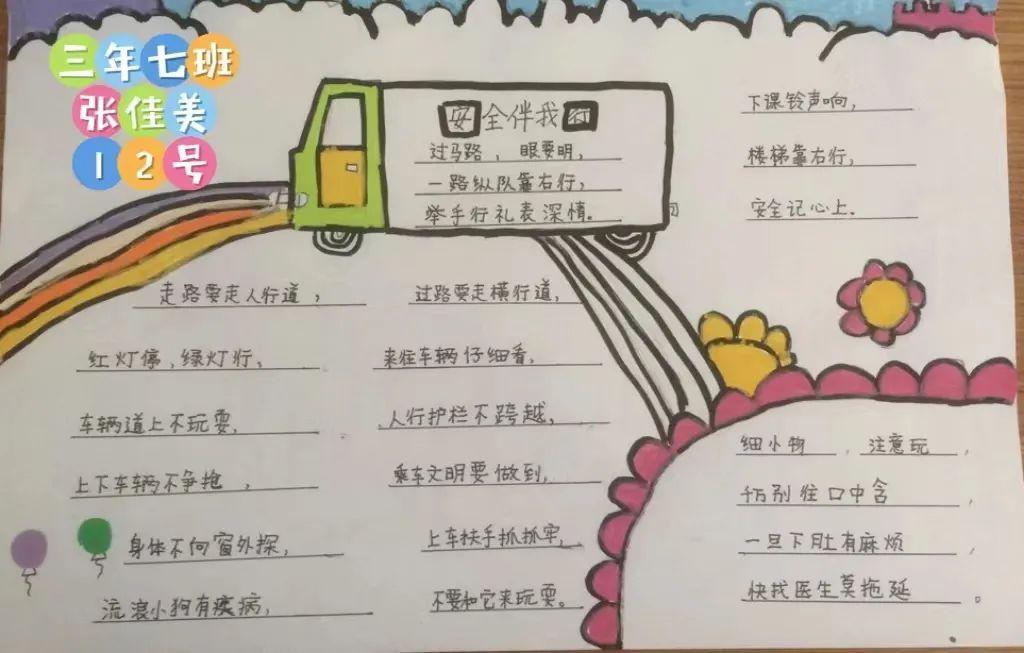 三年七班
张佳美
12号
安全伴我行
过马路，眼要明，
一路纵队靠右行，
举手行礼表深情。
下课铃声响，
楼梯靠右行，
安全记心上.
走路要走人行道， 过路要走横行道，
红灯停，绿灯行， 来往车辆仔细看，
车辆道上不玩耍， 人行护栏不跨越，
上下车辆不争抢， 乘车文明要做到，
身体不向窗外探， 上车扶手抓抓牢，
流浪小狗有疾病， 不要和它来玩耍。
细小物，注意玩，
千万别往口中含，
一旦下肚有麻烦，
快找医生莫拖延。